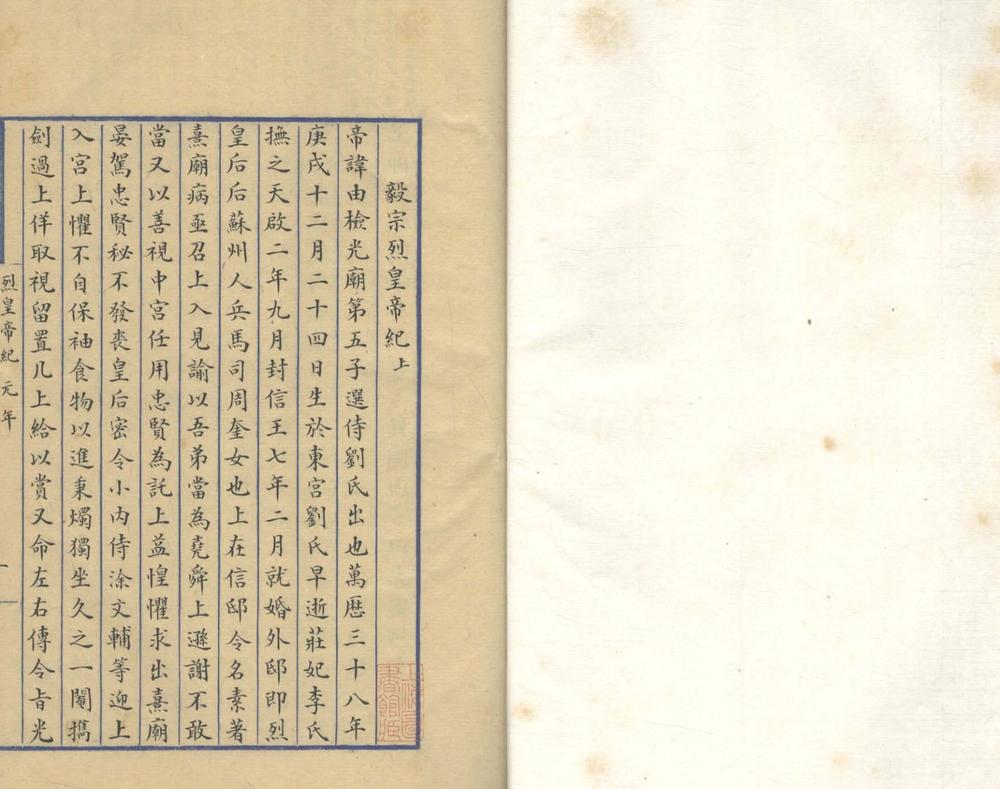 毅宗烈皇帝紀上
帝諱由檢光廟第五子選侍劉氏出也萬歷三十八年
庚戌十二月二十四日生於東宮劉氏早逝莊妃李氏
撫之天啟二年九月封信王七年二月就婚外邸即烈
皇后后蘇州人兵馬司周奎女也上在信邸令名素著
熹廟病亟召上入見諭以吾弟當為堯舜上遜謝不敢
當又以善視中宮任用忠賢為託上益惶懼求出熹廟
晏駕忠賢秘不發喪皇后密令小內侍涂文輔等迎上
入宮上懼不自保袖食物以進秉燭獨坐久之一閹攜
劍過上佯取視留置几上給以賞又命左右傳令旨光
烈皇帝紀 元年